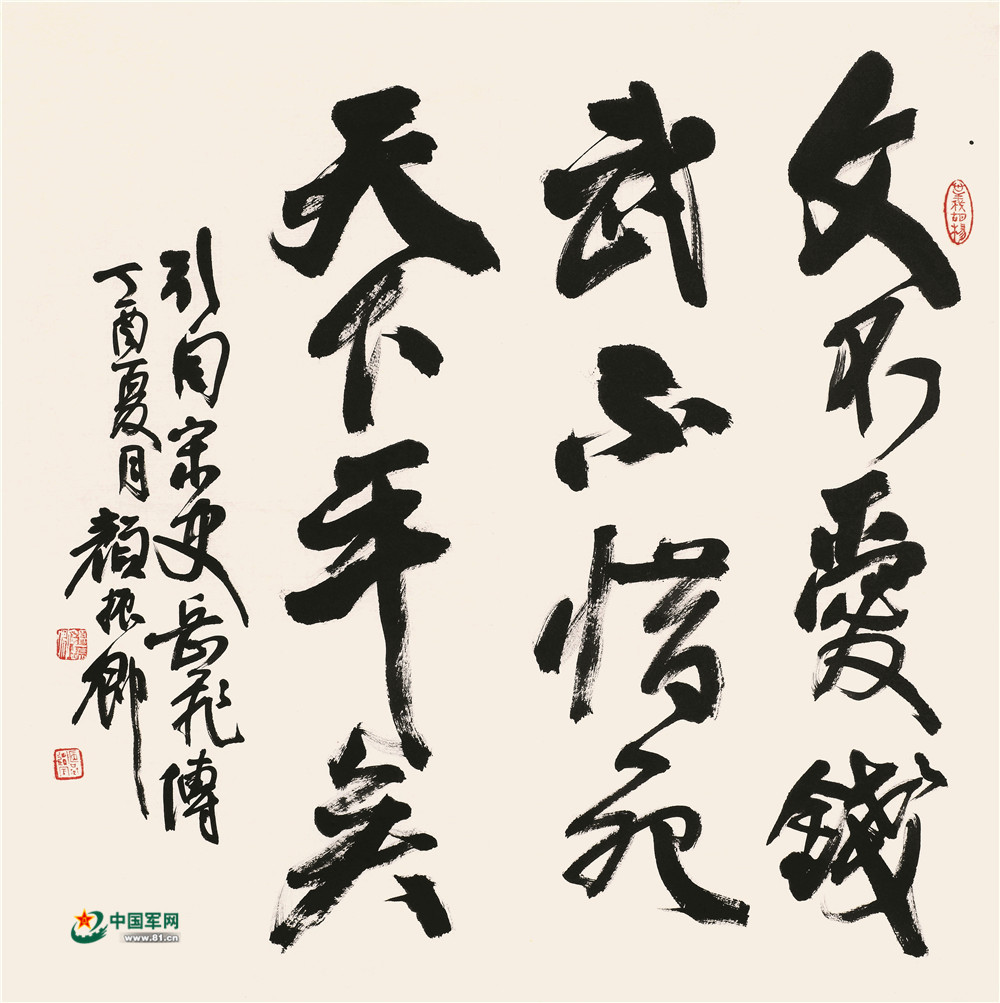 文不愛錢
武不惜死
天下平矣
引自宋史岳飛傳
丁酉夏月 顏振卿
中国军网
www.81.cn